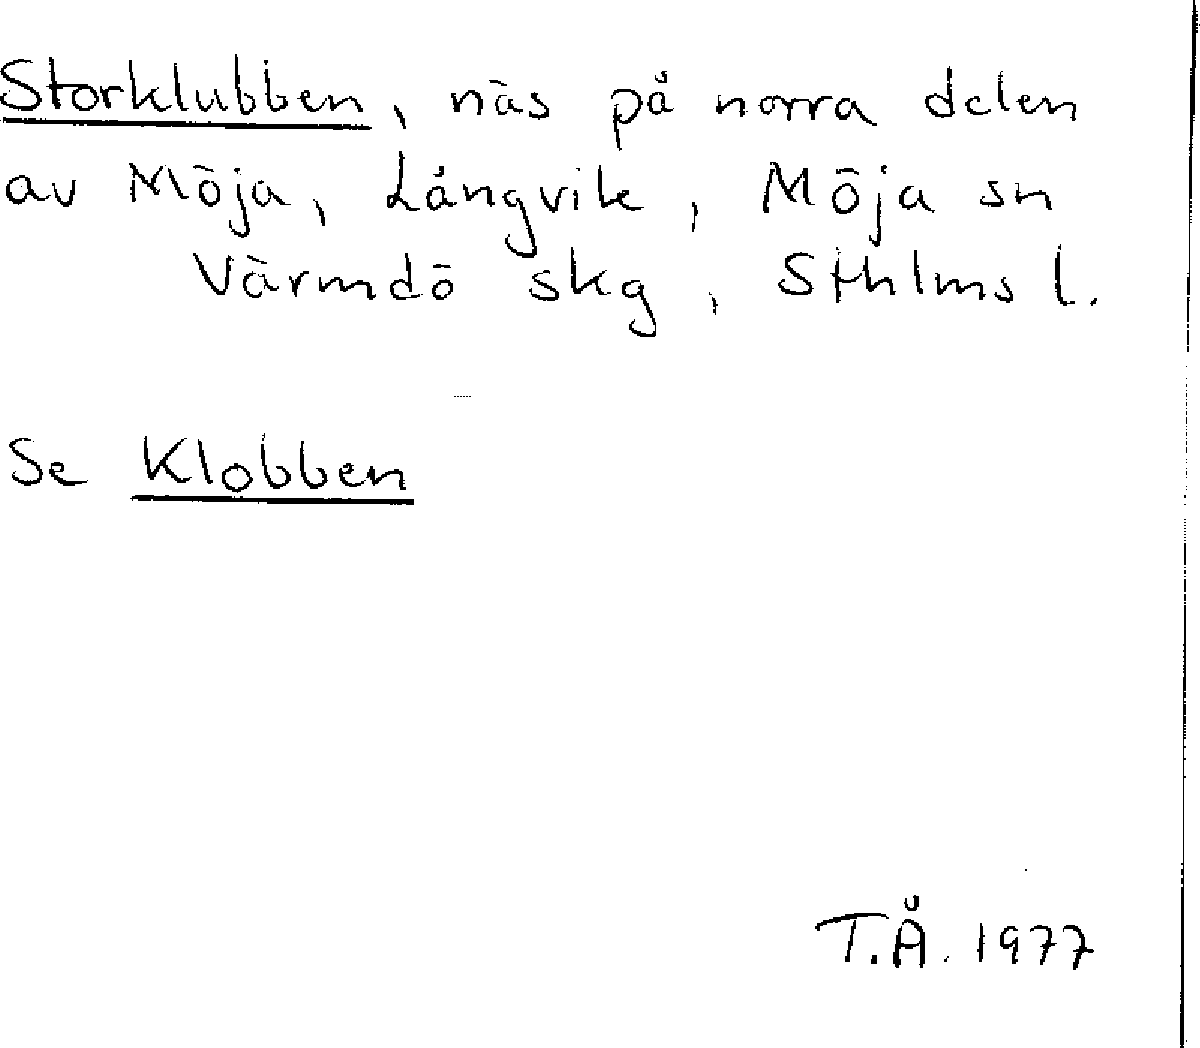 Storklubben, näs på norra delen
av Möja, Långvik, Möja sn
Värmdö skg, Sthlms l.
Se Klobben
T.Å. 1977